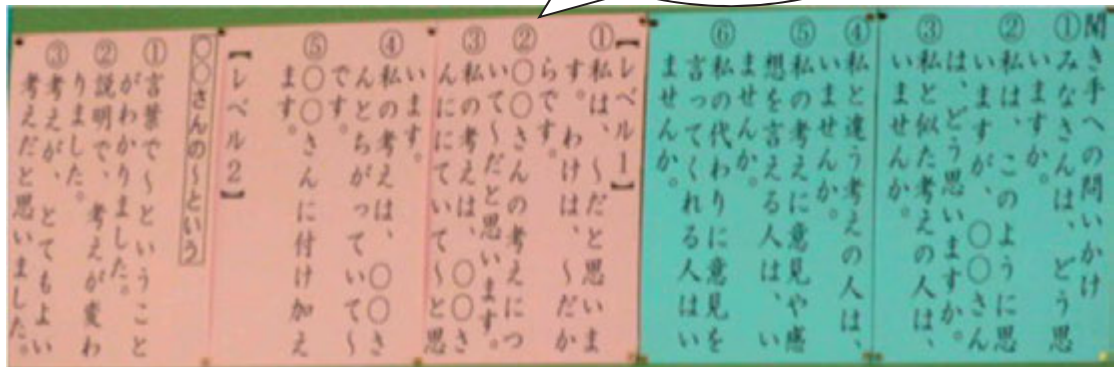 聞き手への問いかけ
①みなさんは、どう思
いますか。
②私は、このように思
いますが、○○さん
は、どう思いますか。
③私と似た考えの人は、
いませんか。
④私と違う考えの人は、
いませんか。
⑤私の考えに意見や感
想を言える人は、い
ませんか。
⑥私の代わりに意見を
言ってくれる人はい
ませんか。
【レベル1】
①私は、～だと思いま
す。わけは、～だか
らです。
②○○さんの考えにつ
いて～だと思います。
③私の考えは、○○さ
んににていて～と思
います。
④私の考えは、○○さ
んとちがっていて～
です。
⑤○○さんに付け加え
ます。
【レベル2】
○○さんの～という
①言葉で～ということ
がわかりました。
②説明で、考えが変わ
りました。
③考えが、とてもよい
考えだと思いました。